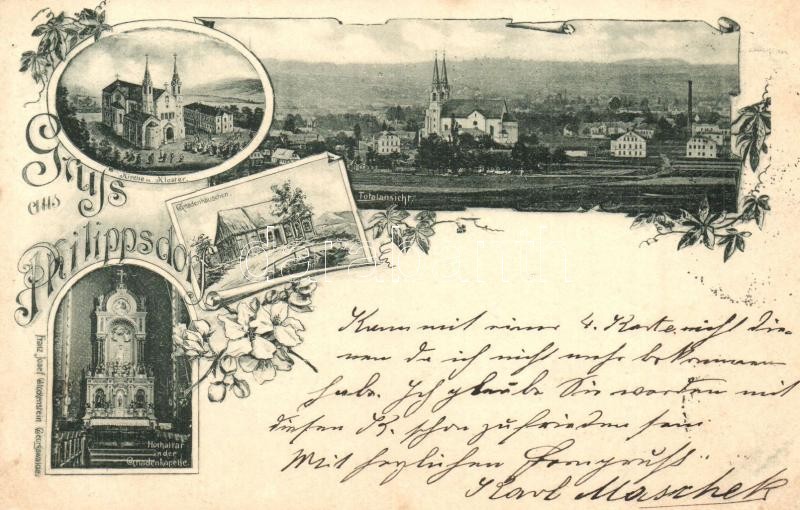 Kirche u. Kloster.
Gruss
aus
Philippsdorf
Totalansicht.
Gnadenhäuschen.
Hochaltar
in der
Gnadenkapelle.
Franz Josef
Kann mit einer 4. Karte nicht die-
nen da ich nicht mehr bekommen
habe. Ich glaube Sie werden mit
diesen K. schon zufrieden sein
Mit herzlichen Ferngruß
Karl Maschek